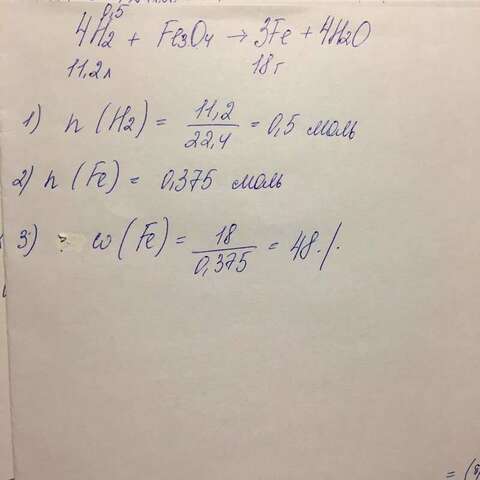 0,5
4H₂ + Fe₃O₄ → 3Fe + 4H₂O
11,2л 18г
1) n (H₂) = 11,2/22,4 = 0,5 моль
2) n (Fe) = 0,375 моль
3) ω (Fe) = 18/0,375 = 48 %